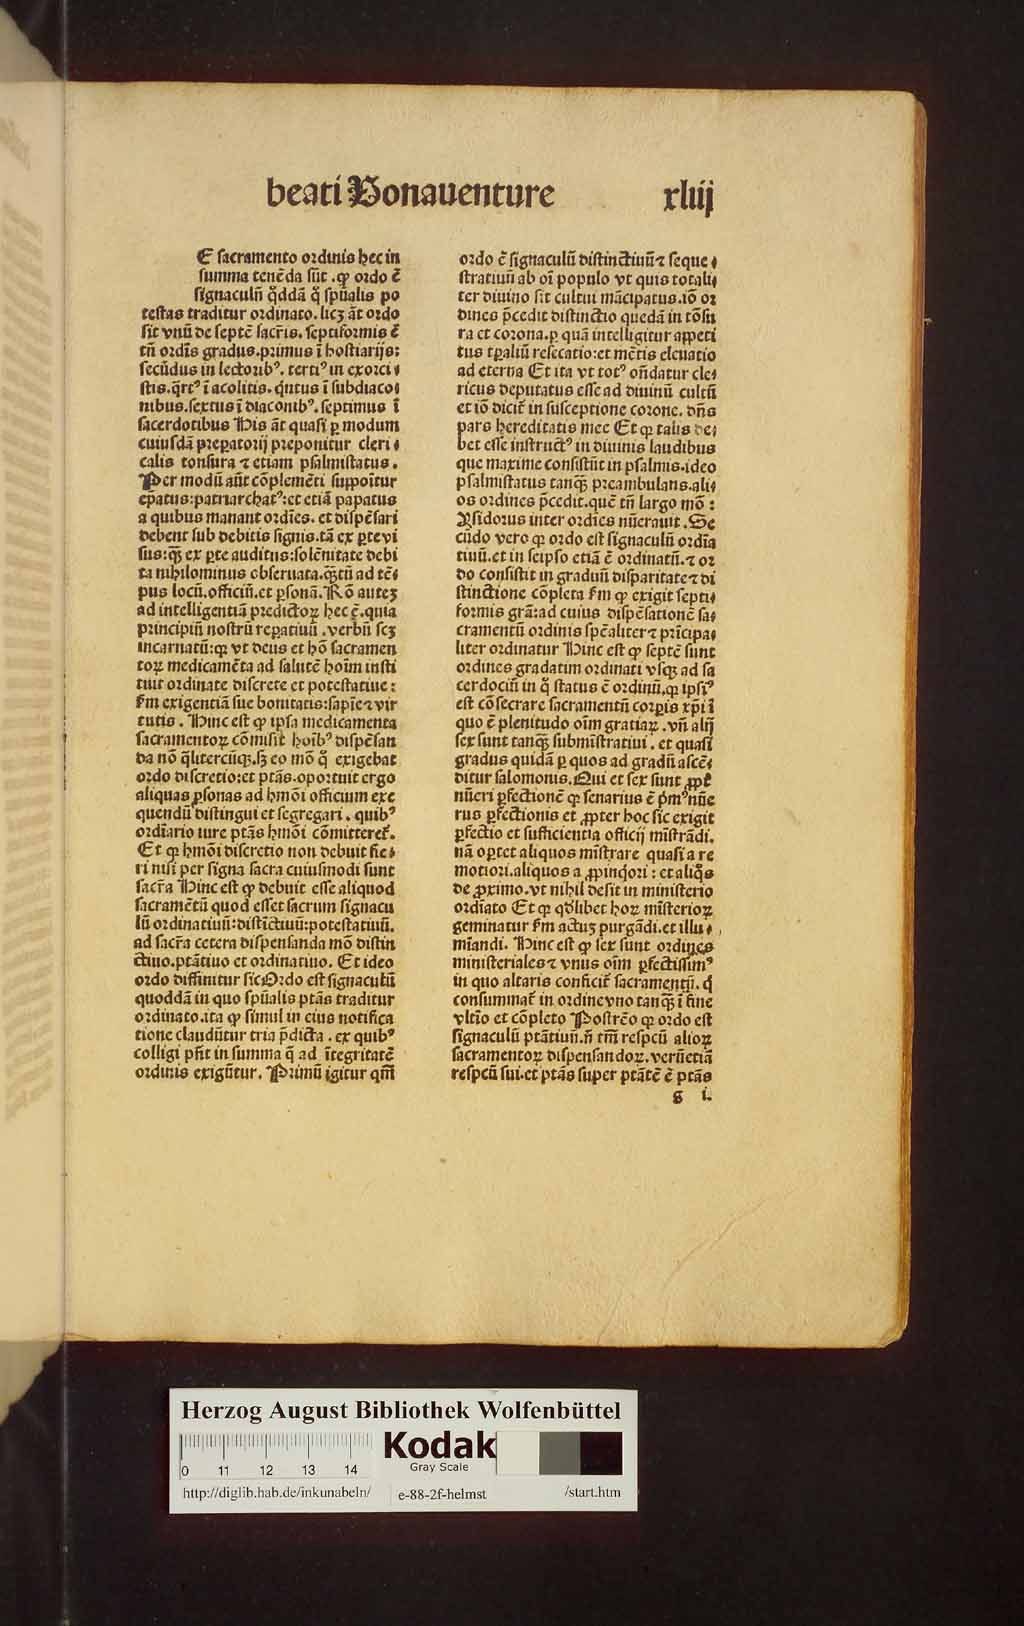 beati Bonauenture xliij
E sacramento ordinis hec in
summa tenẽda sũt .ꝙ ordo ẽ
signaculũ q̊ddã q̊ sp̃ualis po
testas traditur ordinato. licꝫ ãt ordo
sit vnũ de septẽ sacr̃is. septiformis ẽ
tñ ordĩs gradus.primus ĩ hostiarijs:
secũdus in lectoribꝰ. tertiꝰ in exorci
stis.q̃rtꝰ ĩ acolitis. q̃ntus ĩ subdiaco
nibus.sextus ĩ diaconibꝰ. septimus ĩ
sacerdotibus His ãt quasi ꝑ modum
cuiusdã preꝑatorij preponitur cleri
calis tonsura ⁊ etiam psalmistatus.
Per modũ aũt cõplemẽti suppoĩtur
ep̃atus:patriarchatꝰ:et etiã papatus
a quibus manant ordĩes. et dispẽsari
debent sub debitis signis.tã ex ꝑte vi
sus:q̃ꝫ ex ꝑte auditus:solẽnitate debi
ta nihilominus obseruata.q̃ꝫtũ ad tẽ
pus locũ.officiũ.et ꝑsonã. Rõ autez
ad intelligentiã predictoꝝ hec ẽ.quia
principiũ nostrũ reꝑatiuũ .verbũ scꝫ
incarnatũ:qꝛ vt deus et hõ sacramen
toꝝ medicamẽta ad salutẽ hoĩm insti
tuit ordinate discrete et potestatiue:
ẽm exigentiã sue bonitatis:sapĩe ⁊ vir
tutis. Hinc est ꝙ ipsa medicamenta
sacramentoꝝ cõmisit hoĩbꝰ dispẽsan
da nõ q̃litercũqꝫ.sꝫ eo mõ q̊ exigebat
ordo discretio:et ptãs.oportuit ergo
aliquas ꝑsonas ad hmõi officium exe
quendũ distingui et segregari. quibꝰ
ordĩario iure ptãs hmõi cõmitteret̃.
Et qꝛ hmõi discretio non debuit fie
ri nisi per signa sacra cuiusmodi sunt
sacr̃a Hinc est ꝙ debuit esse aliquod
sacramẽtũ quod esset sacrum signacu
lũ ordinatiuũ:distĩctiuũ:potestatiuũ.
ad sacr̃a cetera dispensanda mõ distin
ctiuo.ptãtiuo et ordinatiuo. Et ideo
ordo diffinitur sic Ordo est signaculũ
quoddã in quo sp̃ualis ptãs traditur
ordinato.ita ꝙ simul in eius notifica
tione claudũtur tria p̃dicta. ex quibꝰ
colligi pñt in summa q̃ ad ĩtegritatẽ
ordinis exigũtur. Primũ igitur qm̃
ordo ẽ signaculũ distinctiuũ ⁊ seque
stratiuũ ab oĩ populo vt quis totali
ter diuino sit cultui mãcipatus.iõ or
dines p̃cedit distinctio quedã in tõsu
ra et corona.ꝑ quã intelligitur appeti
tus tꝑaliũ resecatio:et mẽtis eleuatio
ad eterna Et ita vt totꝰ oñdatur cle
ricus deputatus esse ad diuinũ cultũ
et iõ dicit̃ in susceptione corone. dñs
pars hereditatis mee Et qꝛ talis de
bet esse instructꝰ in diuinis laudibus
que maxime consistũt in psalmis.ideo
psalmistatus tanq̃ꝫ preambulans.ali
os ordines p̃cedit.quẽ tñ largo mõ :
Ysidorus inter ordĩes nũerauit. Se
cũdo vero qꝛ ordo est signaculũ ordĩa
tiuũ.et in seipso etiã ẽ ordinatũ.⁊ or
do consistit in graduũ disparitate ⁊ di
stinctione cõpleta ẽm ꝙ exigit septi
formis grã:ad cuius dispẽsationẽ sa
cramentũ ordinis spẽaliter ⁊ prĩcipa
liter ordinatur Hinc est ꝙ septẽ sunt
ordines gradatim ordinati vsqꝫ ad sa
cerdociũ in q̊ status ẽ ordinũ.qꝛ ipsiꝰ
est cõsecrare sacramentũ corꝑis xp̃i ĩ
quo ẽ plenitudo oĩm gratiaꝝ. vñ alij
sex sunt tanq̃ꝫ submĩstratiui. et quasi
gradus quidã ꝑ quos ad gradũ ascẽ
ditur salomonis. Qui et sex sunt ꝓpt̃
nũeri ꝑfectionẽ qꝛ senarius ẽ p̃mꝰ nũe
rus ꝑfectionis et ꝓpter hoc sic exigit
ꝑfectio et sufficientia officij mĩstrãdi.
nã oꝑtet aliquos mĩstrare quasi a re
motiori.aliquos a ꝓpinq̃ori : et aliq̊s
de ꝓximo.vt nihil desit in ministerio
ordĩato Et qꝛ qd̃libet hoꝝ mĩsterioꝝ
geminatur ẽm actuꝫ purgãdi.et illu
mĩandi. Hinc est ꝙ sex sunt ordines
ministeriales ⁊ vnus oĩm ꝑfectissimꝰ
in quo altaris conficit̃ sacramentũ. q̃
consummat̃ in ordine vno tanq̃ꝫ ĩ fine
vltĩo et cõpleto Postrẽo qꝛ ordo est
signaculũ ptãtiuũ.ñ tm̃ respcũ alioꝝ
sacramentoꝝ dispensandoꝝ.verũetiã
respcũ sui.et ptãs super ptãtẽ ẽ ptãs
g i.
Herzog August Bibliothek Wolfenbüttel
0 11 12 13 14
Kodak
Gray Scale
http://diglib.hab.de/inkunabeln/ e-88-2f-helmst /start.htm